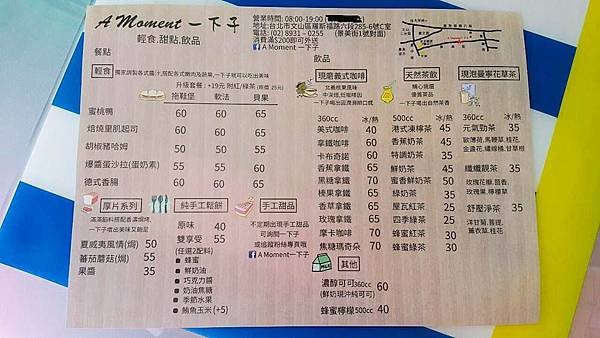 A Moment 一下子
輕食.甜點.飲品
營業時間: 08:00-19:00
地址:台北市文山區羅斯福路六段285-6號C室
電話: (02) 8931 – 0255 (景美街1號對面)
消費滿$200即可外送
A Moment 一下子
餐點
輕食
獨家調製各式醬汁,搭配各式嫩肉及蔬果,一下子就可以吃出美味
升級套餐：+19元 附紅/綠茶 (原價 25元)
拖鞋堡 軟法 貝果
蜜桃鴨 60 60 65
焙燒里肌起司 60 60 65
胡椒豬哈姆 50 50 55
爆醬蛋沙拉(蛋奶素) 55 55 55
德式香腸 60 60 65
厚片系列
滿滿餡料搭配香濃焗烤,
一下子嚐出美味又飽足
夏威夷風情(焗) 50
蕃茄蘑菇(焗) 55
果醬 35
純手工鬆餅
原味 40
雙享受 55
(任選2配料)
蜂蜜
鮮奶油
巧克力醬
奶油焦糖
季節水果
鮪魚玉米 (+5)
手工甜品
不定期出現手工甜品
可詢問一下子
或追蹤粉絲專頁哦
A Moment一下子
飲品
現磨義式咖啡
北義根東風味
中深焙,班咖啡因
一下子喝出回潤滑順口感
360cc 冰/熱
美式咖啡 40
拿鐵咖啡 60
卡布奇諾 60
香蕉拿鐵 65
黑糖拿鐵 65
榛果拿鐵 65
香草拿鐵 65
玫瑰拿鐵 65
摩卡咖啡 70
焦糖瑪奇朵 70
天然茶飲
精心挑選
優質茶品
一下子喝出自然茶香
500cc 冰/熱
港式凍檸茶 45
香蕉奶茶 45
特調奶茶 35
鮮奶茶 50
蜜香鮮奶茶 50
綠奶茶 35
屋瓦紅茶 25
四季綠茶 25
蜂蜜紅茶 30
蜂蜜綠茶 30
現泡曼寧花草茶
360cc 冰/熱
元氣勁茶 35
歐薄荷,馬鞭草,桂花,
金盞花,繡線橘,甘草根
纖纖靚茶 35
玫瑰花瓣,茴香,
玫瑰果,檸檬草
舒壓淨茶 35
洋甘菊,菩提,
薰衣草,桂花
其他
濃醇可可 360cc 60
(鮮奶現沖純可可)
蜂蜜檸檬 500cc 40